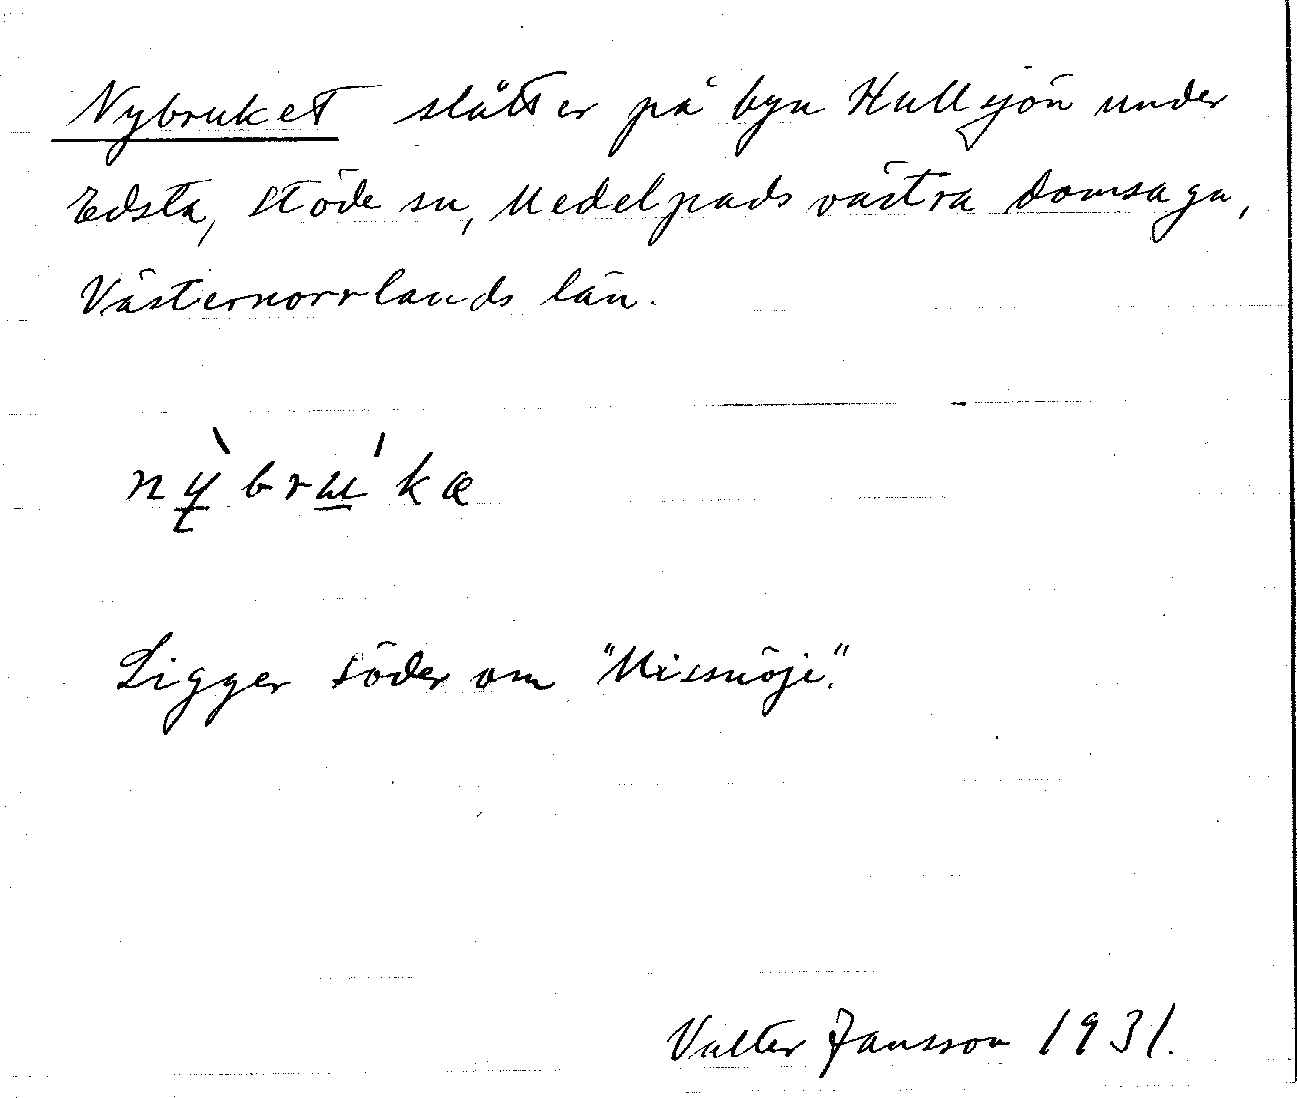 Nybruket slåtter på byn Hullsjön under
Edsta, Stöde sn, Medelpads västra domsaga,
Västernorrlands län.
nỳ̠brú̠kæ
Ligger söder om "Missnöje".
Valter Jansson 1931.